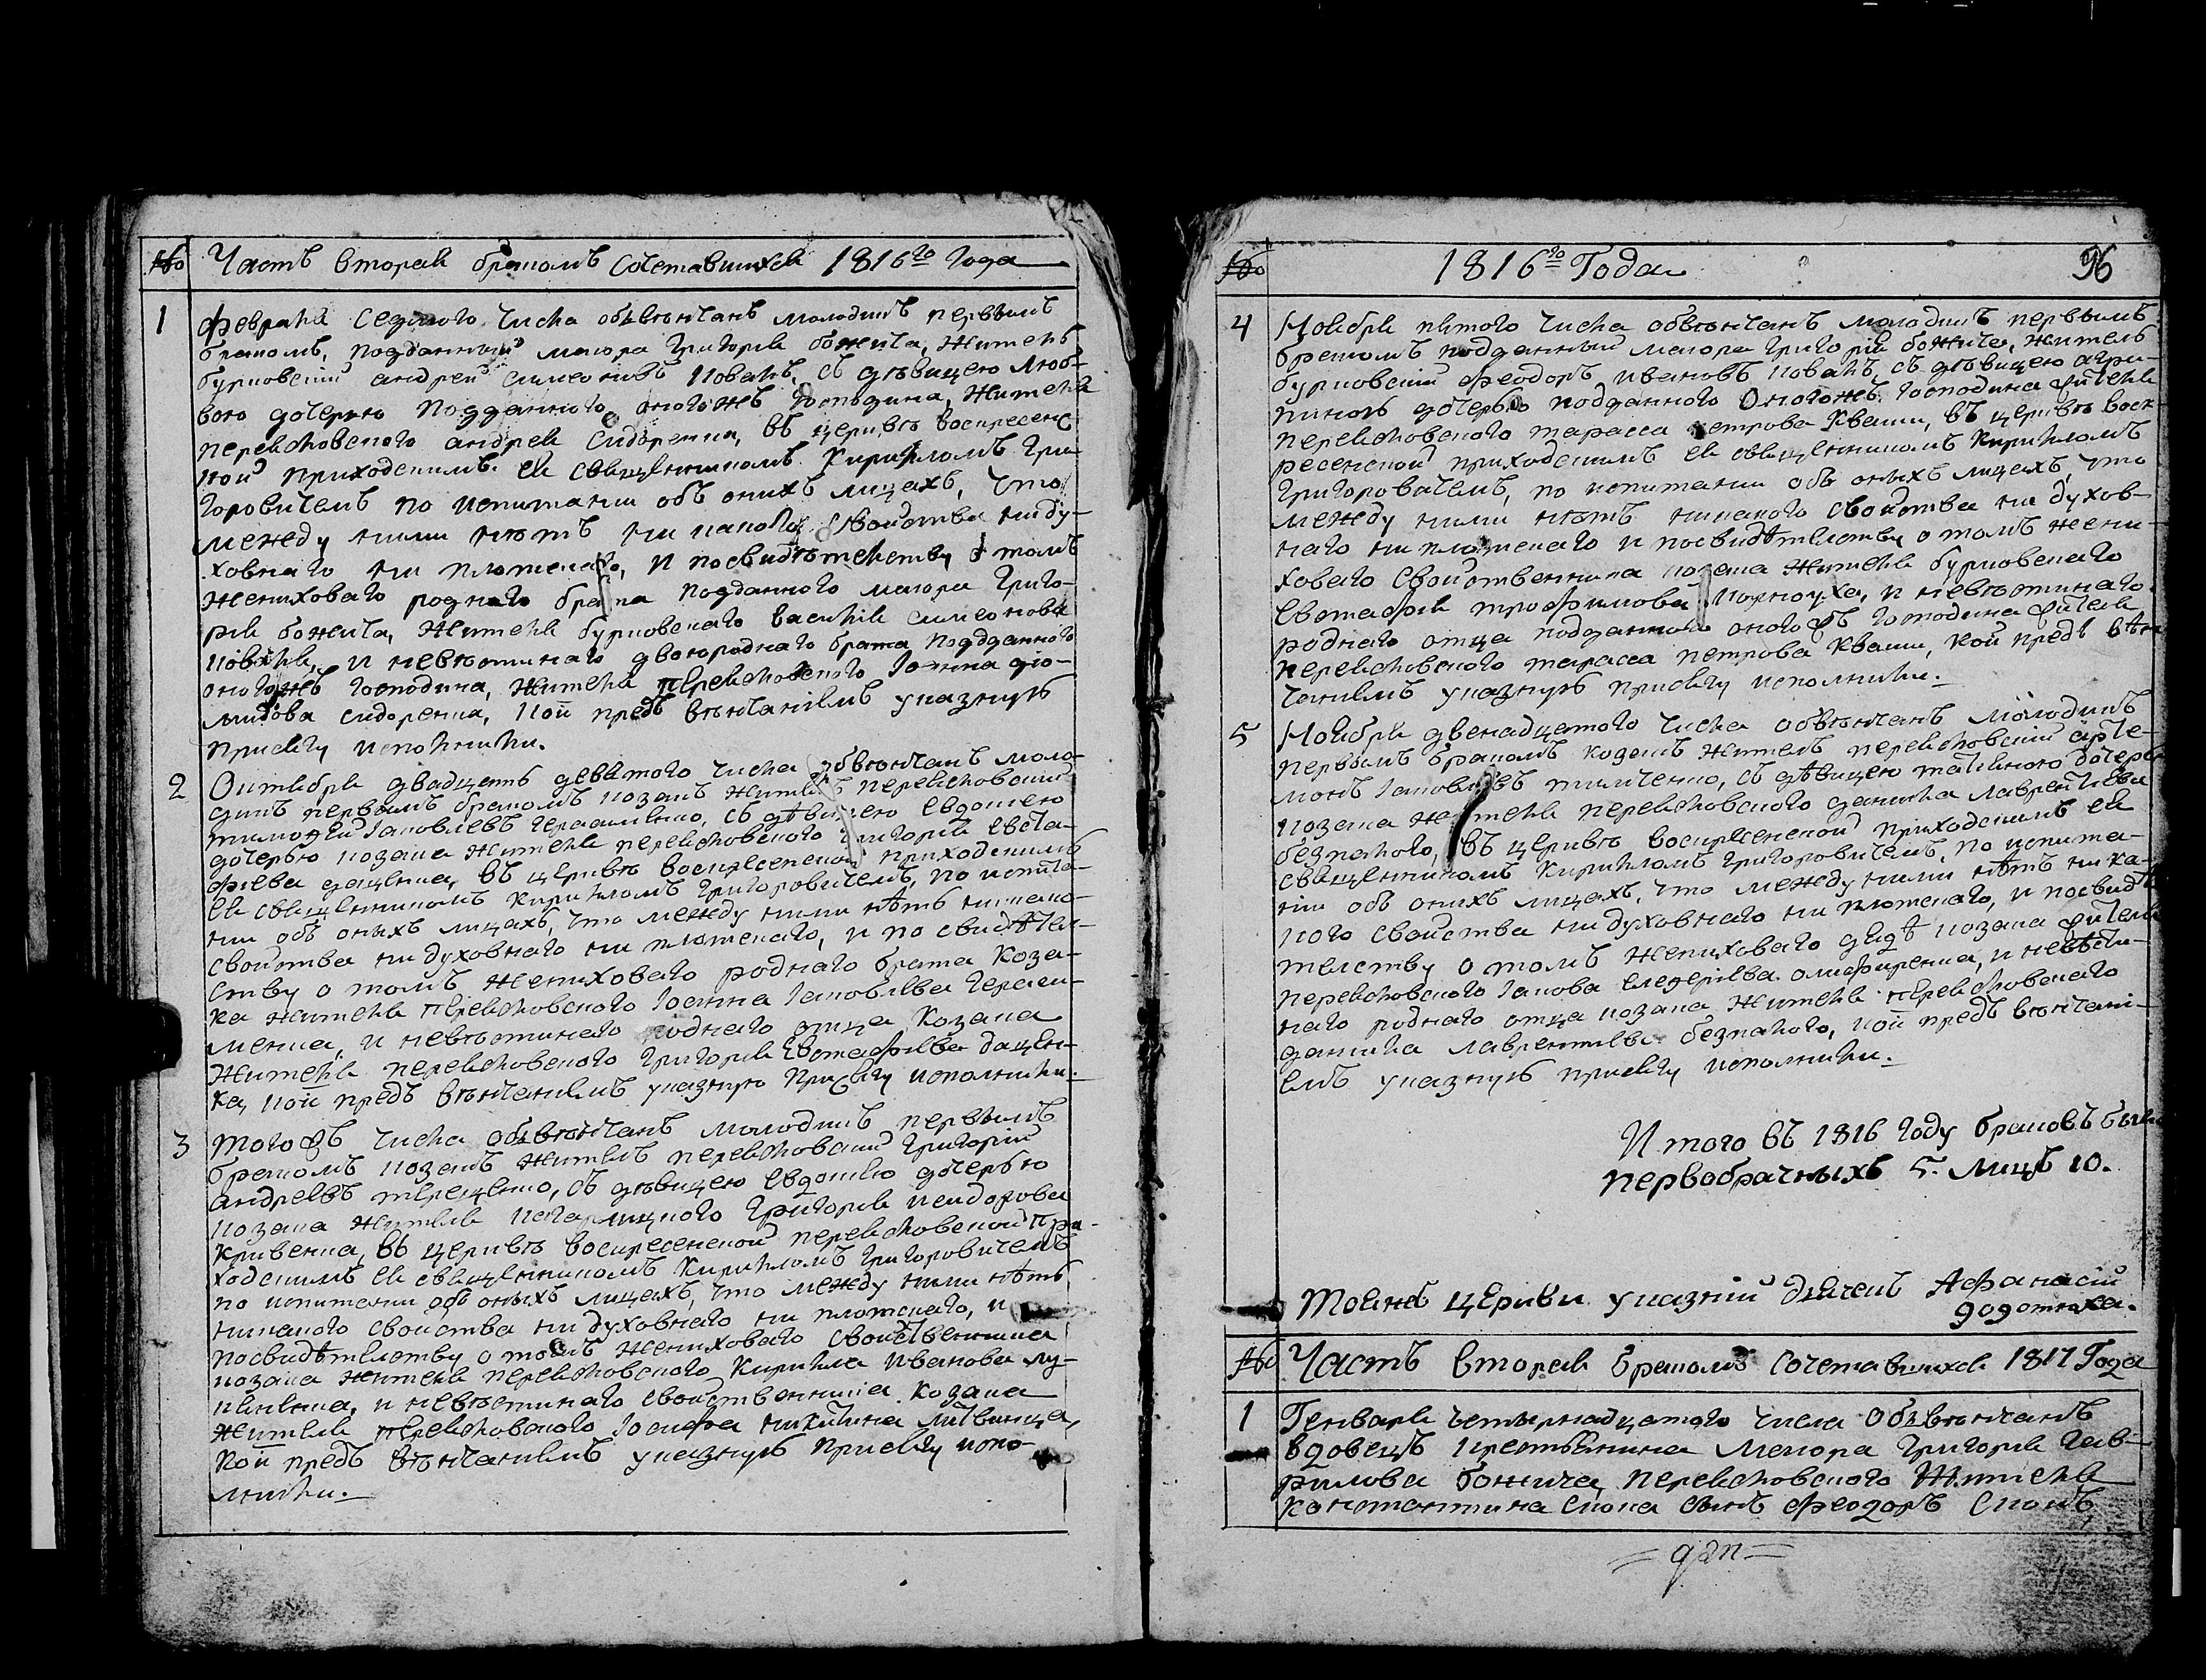 № Часть вторая бракомъ сочетавшихся 1816го Года
1 Февраля седмого числа обвѣнчанъ молодикъ первымъ
бракомъ, подданный маіора Григорія божича, житель
бурковский андрей симеоновъ коваль, съ дѣвицею Люб-
вою дочерью подданного оногожъ господина, жителя
переясловского андрея сидоренка, въ церквѣ воскресенс-
кой приходскимъ ея священникомъ Кирилломъ Гри
горовичемъ по испитаніи объ онихъ лицахъ, что
между ними нѣтъ ни какого свойства ниду-
ховнаго ни плотскаго, и посвидѣтельству о томъ
жениховаго роднаго брата подданного маіора Григо-
рія божича, жителя бурковского василія симеонова
коваля, и невѣстинаго двоюроднаго брата подданного
оногожъ господина, жителя переясловского Іоанна діо-
мидова сидоренка, кои предъ вѣнчаніемъ указную
присягу исполнили.
2 Октября двадцать девятого числа обвѣнчанъ моло-
дикъ первымъ бракомъ козакъ житель переясловский
тимофей Іаковлевъ герасименко, съ дѣвицею Евдокіею
дочерью козака жителя переясловского григорія Евста-
фіева даценка, въ церквѣ воскресенской приходскимъ
ея священникомъ Кирилломъ Григоровичемъ, по испита-
нии объ онихъ лицахъ, что между ними нѣтъ никако-
свойства ни духовнаго ни плотскаго, и по свидѣтел-
ству о томъ жениховаго роднаго брата Коза-
ка жителя переясловского Іоанна Іаковлева Гераси-
менка, и невѣстинаго роднаго отца Козака
жителя переясловского Григорія Евстафіева дацен-
ка, кои предъ вѣнчаніемъ указную присягу исполнили.
3 Того жъ числа обвѣнчанъ молодикъ первымъ
бракомъ козакъ житель переясловский Григорій
андреевъ терещенко, съ дѣвицею Евдокіею дочерью
козака жителя Григорія исидорова
Кривенка, въ церквѣ воскресенской переясловской при-
ходскимъ ея священникомъ Кирилломъ Григоровичемъ
по испитании объ онихъ лицахъ, что между ними нѣтъ
никакого свойства ни духовнаго ни плотскаго, и
посвидѣтелству о томъ жениховаго свойственника
козака жителя переясловского Кирилла иванова лу-
невѣстинаго свойственника козака
жителя переясловского Іосифа никитина литвинца,
кои предъ вѣнчаніемъ указную присягу испо-
лнили.
№ 1816го Года 96
4 Ноября пятого числа обвѣнчанъ молодикъ первымъ
бракомъ подданный маіора Григорія божича, житель
бурковский феодоръ ивановъ коваль, съ дѣвицею агри-
пиною дочерью подданного оногожъ господина жителя
переясловского тарасса петрова Кваши, въ церквѣ воск-
ресенской приходскимъ ея священникомъ Кирилломъ
Григоровичемъ, по испитании объ онихъ лицахъ, что
между ними нѣтъ никакого свойства ни духов-
наго ни плотскаго и посвидѣтелству о томъ жени-
ховаго свойственника козака жителя бурковского
Евстафія трофимова и невѣстинаго
роднаго отца подданного оногожъ господина жителя
переясловского тарасса петрова Кваши, кои предъ вѣн
чаніемъ указную присягу исполнили.
5 Ноября двенадцатого числа обвѣнчанъ молодикъ
первымъ бракомъ козакъ житель переясловский арте-
монъ Іаковлевъ тимченко, съ дѣвицею татіаною дочерью
козака жителя переясловского данила лаврентіева
безпалого, въ церквѣ воскресенской приходскимъ ея
священникомъ Кирилломъ Григоровичемъ, по испита-
ніи объ онихъ лицахъ, что между ними нѣтъ ни ка-
кого свойства ни духовнаго ни плотскаго, и посвидѣ
телству о томъ жениховаго дядѣ козака жителя
переясловского Іакова олиференка, и невѣсти-
наго роднаго отца козака жителя переясловского
данила лаврентіева безпалого, кои предъ вѣнчані-
емъ указную присягу исполнили.
Итого въ 1816 году браковъ было
первобрачныхъ 5. лицъ 10.
Тоеяжъ церкви указній дячекъ Афанасій
додотнка.
№ Часть вторая бракомъ сочетавшихся 1817 Года
1 Генваря четырнадцатого числа обвѣнчанъ
вдовецъ крестянина маіора Григорія гав-
рилова божича, переясловского жителя
константина скока сынъ феодоръ скокъ